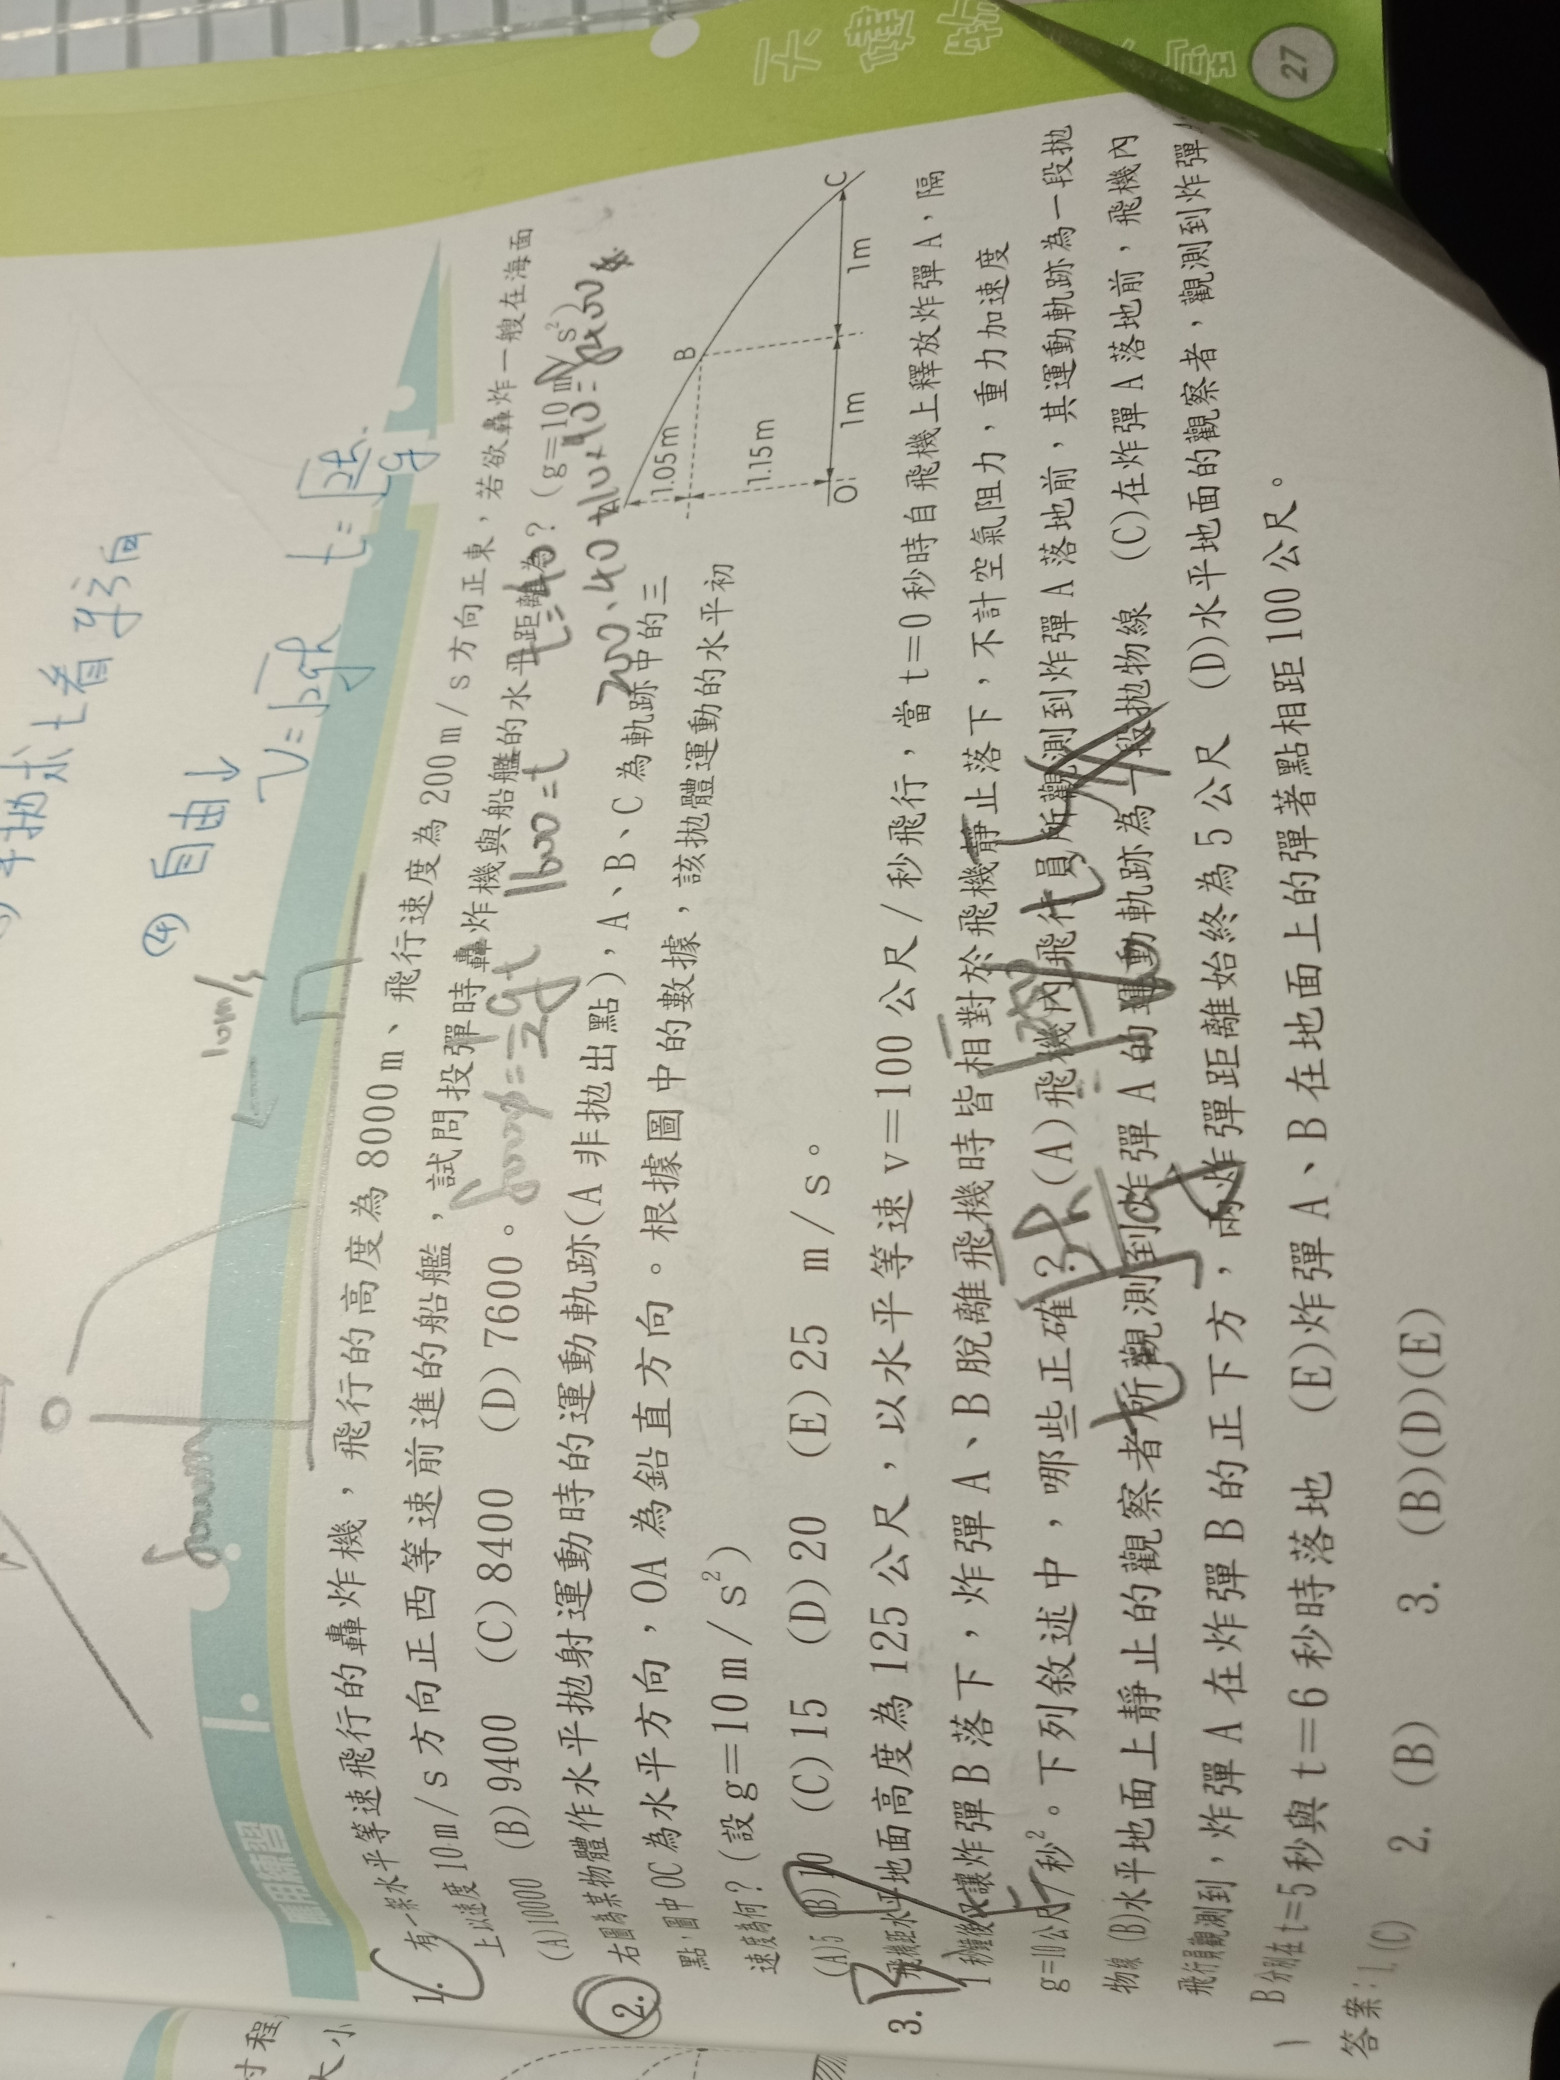 ④ 自由↓
V=√2gh t=√2h/g
10m/s
8000m
應用練習 1.
1. 有一架水平等速飛行的轟炸機，飛行的高度為 8000 m、飛行速度為 200 m / s 方向正東，若欲轟炸一艘在海面
上以速度 10 m / s 方向正西等速前進的船艦，試問投彈時轟炸機與船艦的水平距離為？（g＝10 m / s²）
(A)10000 (B) 9400 (C) 8400 (D) 7600。
8000=½gt 1600=t t=40
200×40+10×40=8400
2. 右圖為某物體作水平拋射運動時的運動軌跡(A 非拋出點)，A、B、C 為軌跡中的三
點，圖中 OC 為水平方向，OA 為鉛直方向。根據圖中的數據，該拋體運動的水平初
速度為何？（設 g＝10 m / s²）
(A) 5 (B) 10 (C) 15 (D) 20 (E) 25 m / s。
A
1.05 m
B
1.15 m
O
1m
1m
C
3. 飛機距水平地面高度為 125 公尺，以水平等速 v＝100 公尺 / 秒飛行，當 t＝0 秒時自飛機上釋放炸彈 A，隔
1 秒鐘後又讓炸彈 B 落下，炸彈 A、B 脫離飛機時皆相對於飛機靜止落下，不計空氣阻力，重力加速度
g＝10 公尺/秒²。下列敘述中，哪些正確？(A)飛機內飛行員所觀測到炸彈 A 落地前，其運動軌跡為一段拋
物線 (B)水平地面上靜止的觀察者所觀測到炸彈 A 的運動軌跡為一段拋物線 (C)在炸彈 A 落地前，飛機內
飛行員觀測到，炸彈 A 在炸彈 B 的正下方，兩炸彈距離始終為 5 公尺 (D)水平地面的觀察者，觀測到炸彈
B 分別在 t＝5 秒與 t＝6 秒時落地 (E)炸彈 A、B 在地面上的彈著點相距 100 公尺。
答案：1. (C) 2. (B) 3. (B)(D)(E)
27